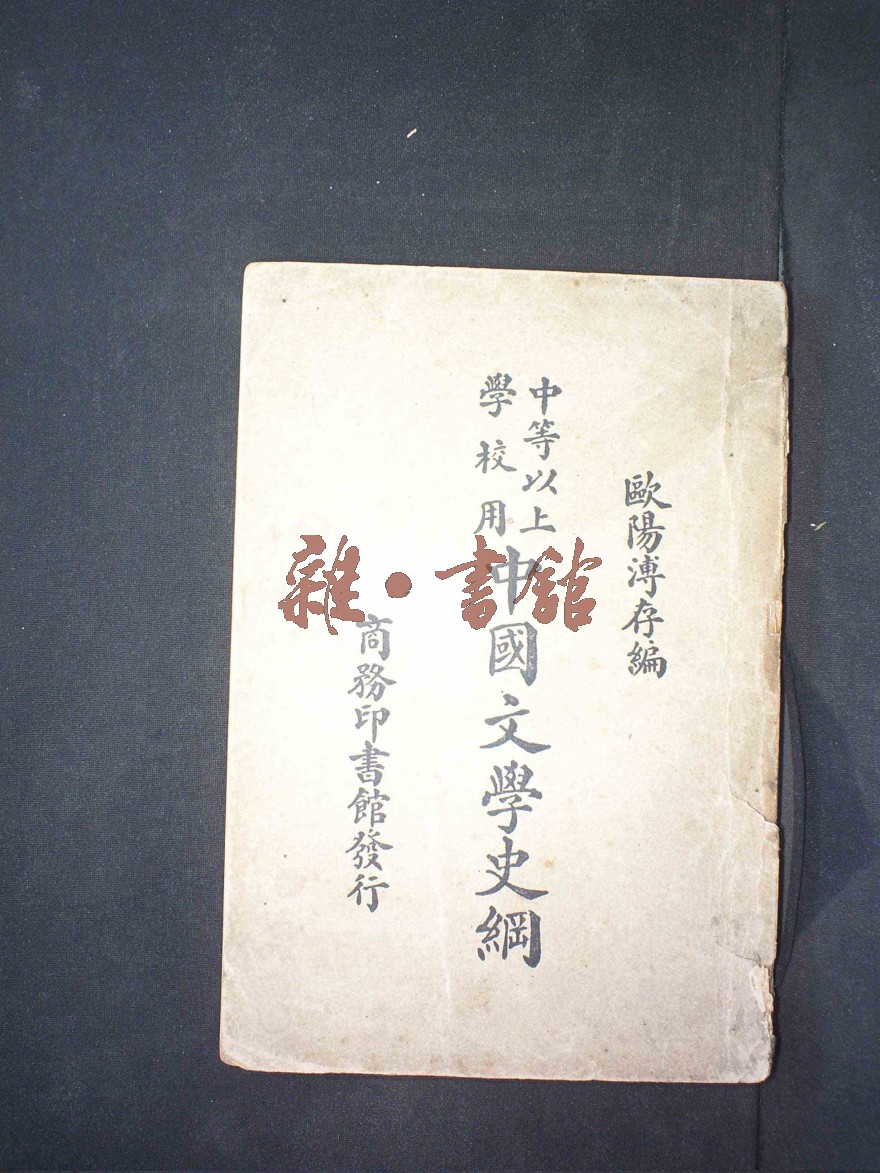 歐陽溥存編
中等以上
學校用
中國文學史綱
商務印書館發行
雜•書館